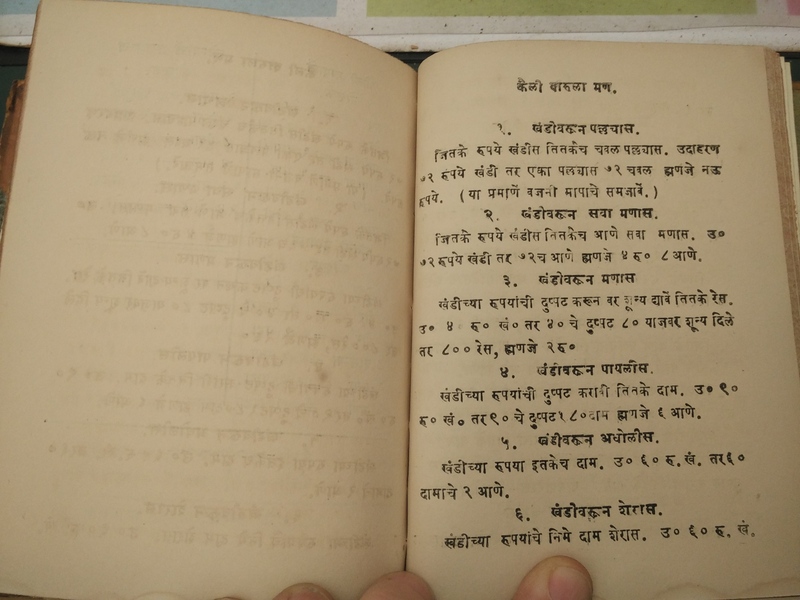 कैली बारुला मण.
१. खंडीवरून पल्ल्यास.
जितके रुपये खंडीस तितकेच चवल पल्ल्यास. उदाहरण
७२ रुपये खंडी तर एका पल्ल्यास ७२ चवल ह्मणजे नऊ
रुपये. (या प्रमाणें वजनी मापाचे समजावें.)
२. खंडीवरून सवा मणास.
जितके रुपये खंडीस तितकेच आणे सवा मणास. उ०
७२ रुपये खंडी तर ७२च आणे ह्मणजे ४ रु० ८ आणे.
३. खंडीवरून मणास
खंडीच्या रुपयांची दुप्पट करून वर शून्य द्यावें तितके रेस.
उ० ४० रु० खं० तर ४० चे दुप्पट ८० याजवर शून्य दिले
तर ८०० रेस, ह्मणजे २ रु०
४. खंडीवरून पायलीस.
खंडीच्या रुपयांची दुप्पट करावी तितके दाम. उ० ९०
रु० खं. तर ९० चे दुप्पट १८० दाम ह्मणजे ६ आणे.
५. खंडीवरून अधोलीस.
खंडीच्या रुपया इतकेच दाम. उ० ६० रु. खं. तर ६०
दामाचे २ आणे.
६. खंडीवरून शेरास.
खंडीच्या रुपयांचे निमे दाम शेरास. उ० ६० रु. खं.